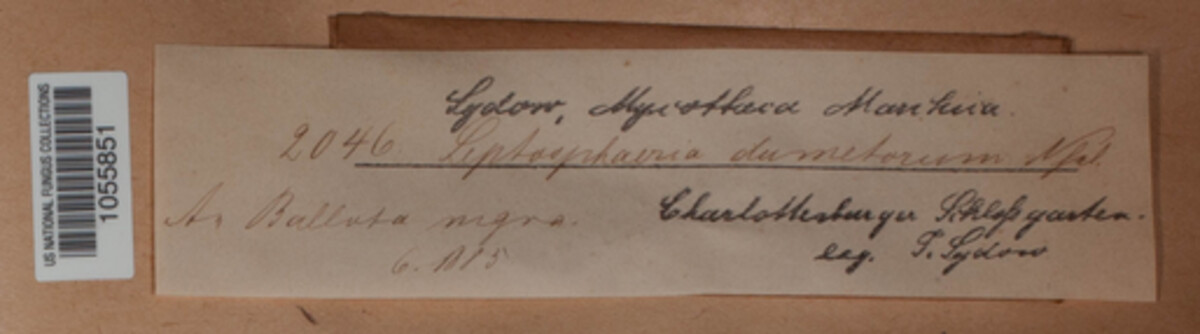 US NATIONAL FUNGUS COLLECTIONS
1055851
Sydow, Mycotheca Marchica.
2046. Leptosphaeria dumetorum Nssl.
An Ballota nigra. Charlottenburger Schloßgarten.
6. 1885 leg. P. Sydow